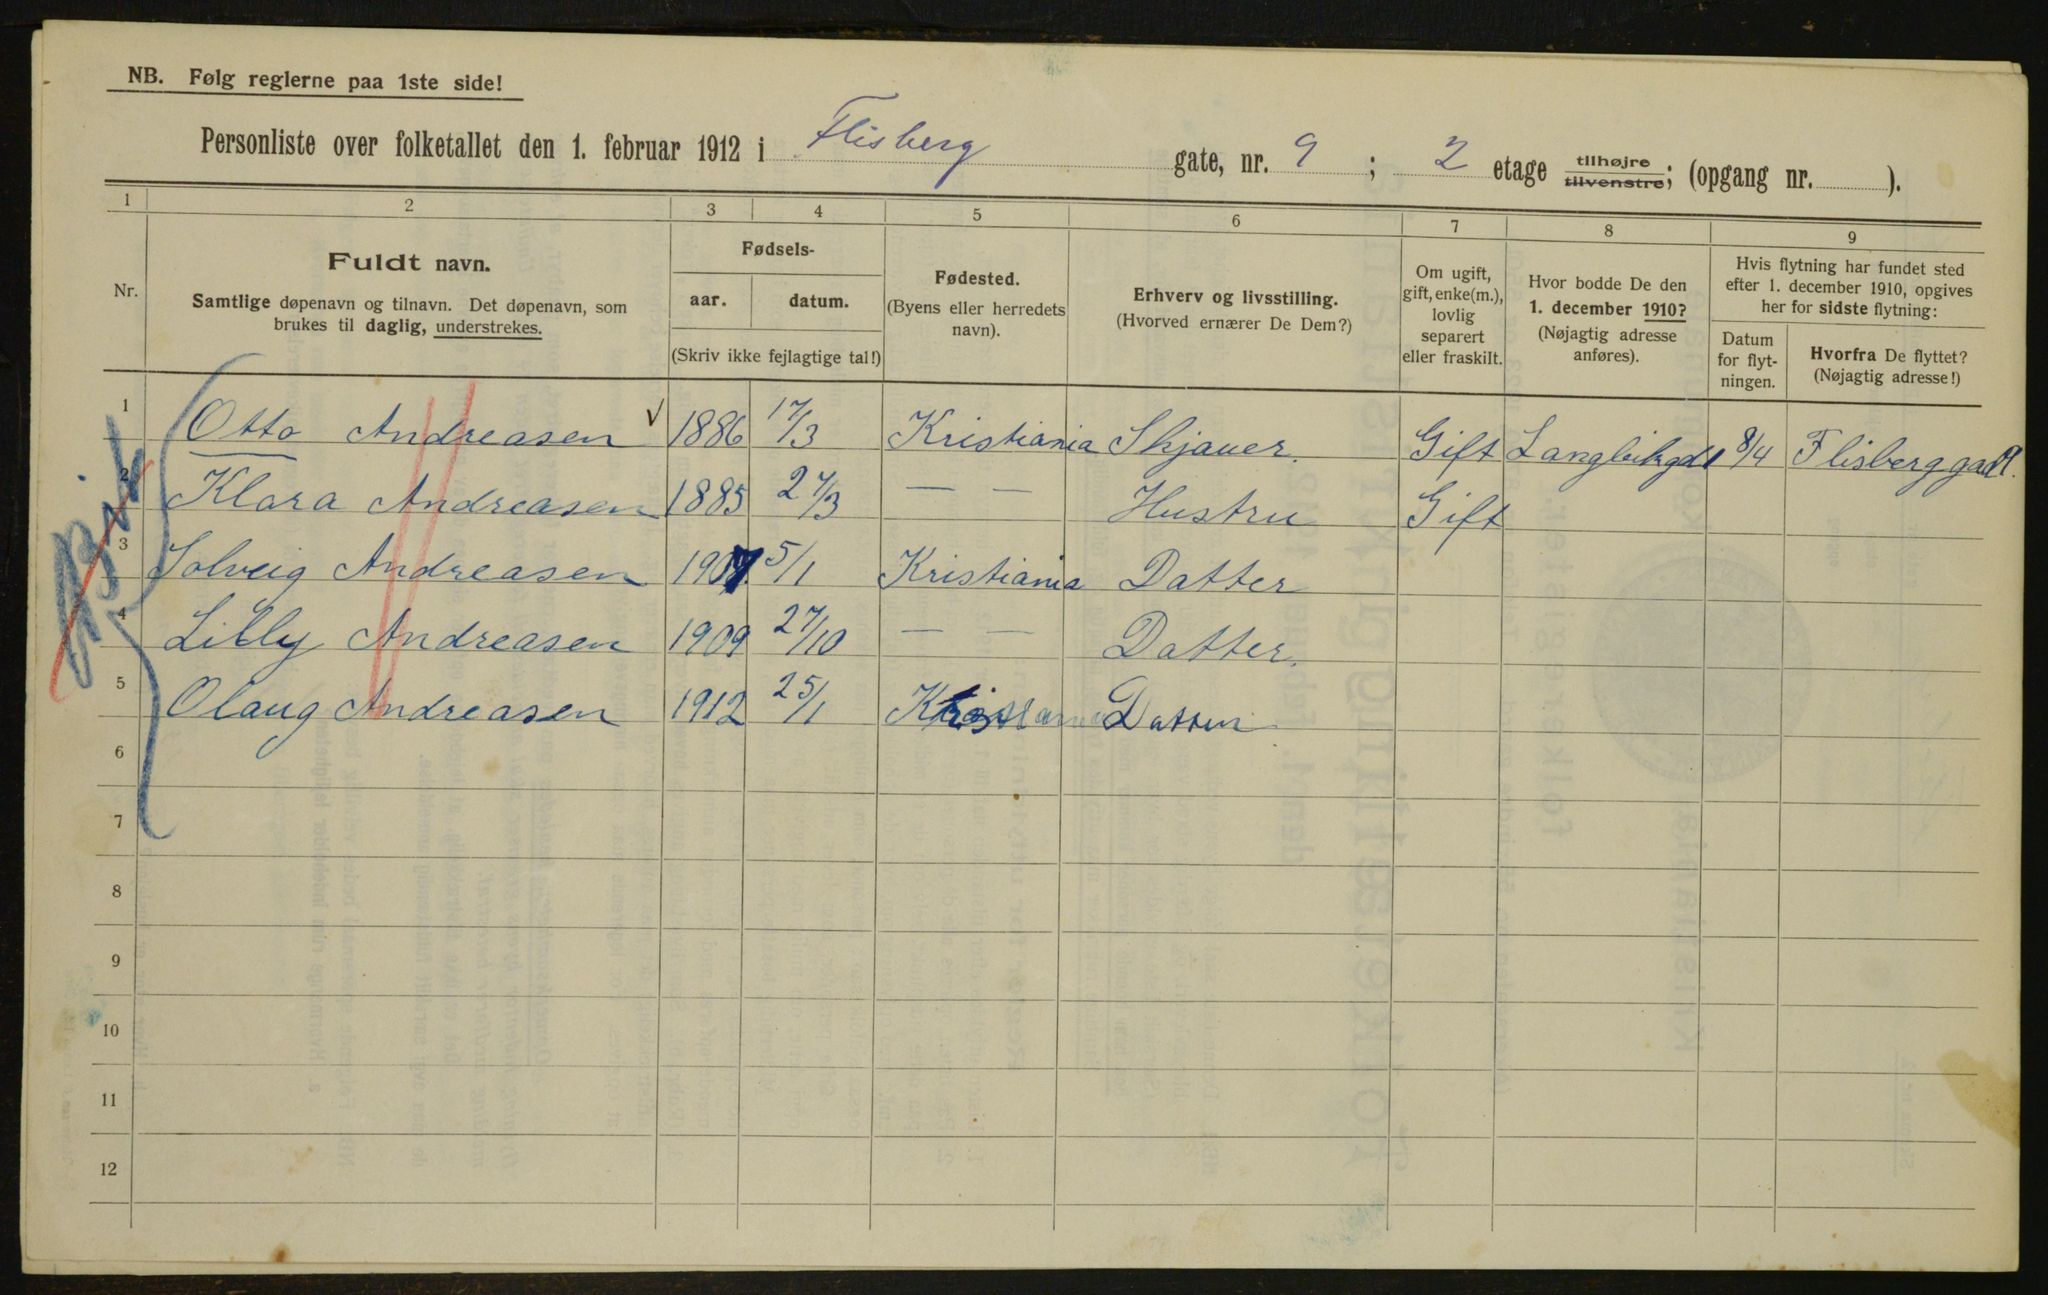 NB. Følg reglerne paa 1ste side!
Personliste over folketallet den 1. februar 1912 i Flisberg gate, nr. 9 ; 2 etage tilhøjre tilvenstre; (opgang nr. ).
1 2 3 4 5 6 7 8 9
Nr.
Fuldt navn.
Samtlige døpenavn og tilnavn. Det døpenavn, som
brukes til daglig, understrekes.
Fødsels-
aar. datum.
(Skriv ikke fejlagtige tal!)
Fødested.
(Byens eller herredets
navn).
Erhverv og livsstilling.
(Hvorved ernærer De Dem?)
Om ugift,
gift, enke(m.),
lovlig
separert
eller fraskilt.
Hvor bodde De den
1. december 1910?
(Nøjagtig adresse
anføres).
Hvis flytning har fundet sted
efter 1. december 1910, opgives
her for sidste flytning:
Datum
for flyt-
ningen.
Hvorfra De flyttet?
(Nøjagtig adresse!)
1 Otto Andreasen 1886 17/3 Kristiania Skjauer. Gift 8/4
2 Klara Andreasen 1885 27/3 — — Hustru Gift
3 Solveig Andreasen 1907 5/1 Kristiania Datter
4 Lilly Andreasen 1909 27/10 — — Datter.
5 Olaug Andreasen 1912 25/1 Kristiania Datter
6
7
8
9
10
11
12